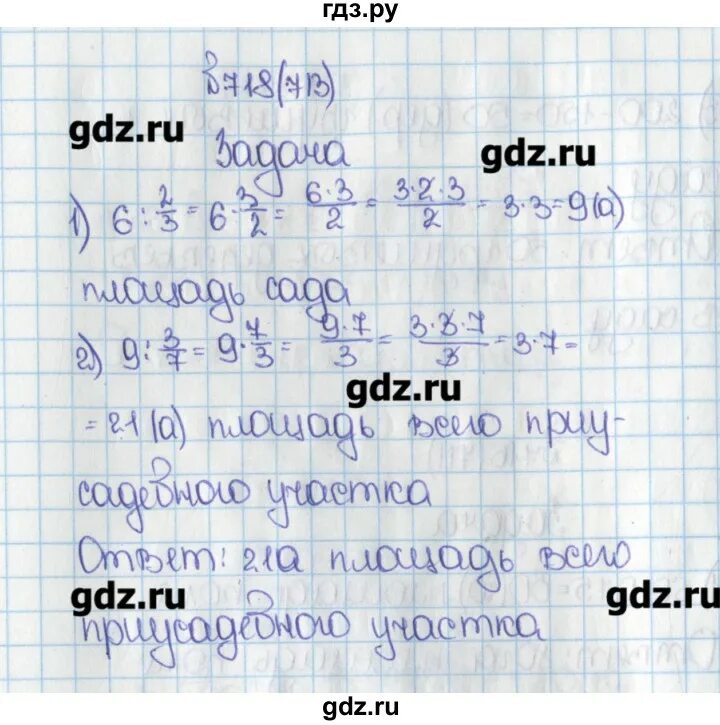 гдз.ру
в718(713)
gdz.ru
Задача
gdz.ru
1) 6 : 2/3 = 6 · 3/2 = 6·3/2 = 3·2·3/2 = 3·3=9(а)
площадь сада
2) 9 : 3/7 = 9 · 7/3 = 9·7/3 = 3·3·7/3 = 3·7=
gdz.ru
= 21 (а) площадь всего приу-
садебного участка
Ответ: 21а площадь всего
gdz.ru
gdz.ru
приусадебного участка
gdz.ru